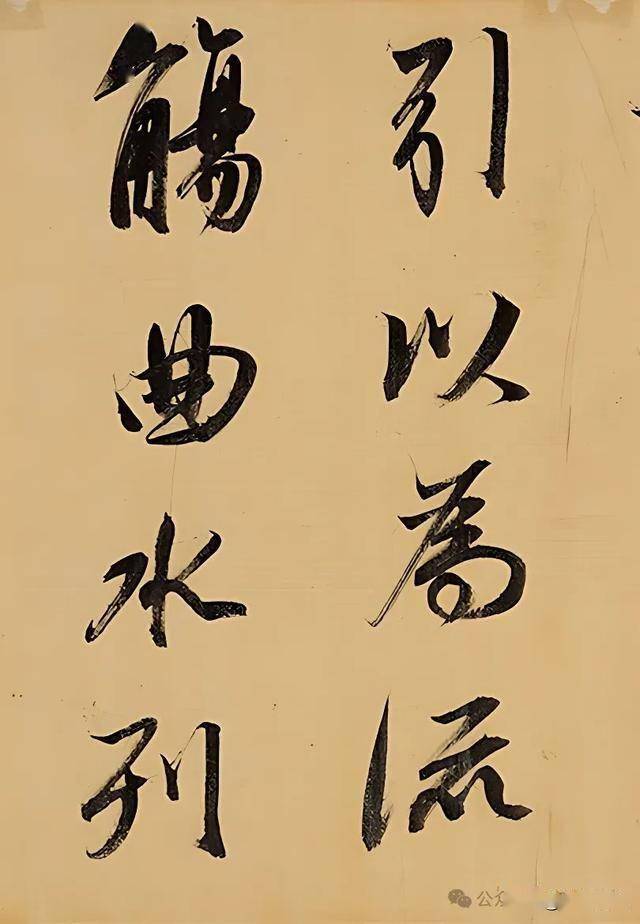 引以為流
觴曲水列
公众